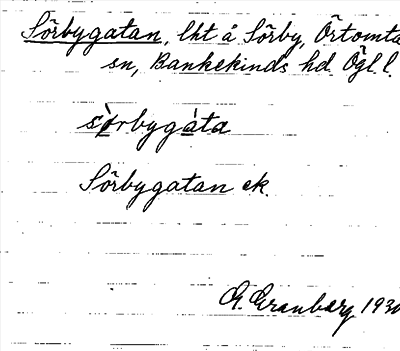 Sörbygatan, lht å Sörby, Örtomta
sn, Bankekinds hd. Ögl.
sòrbygàta
Sörbygatan ek.
G. Granberg 1930